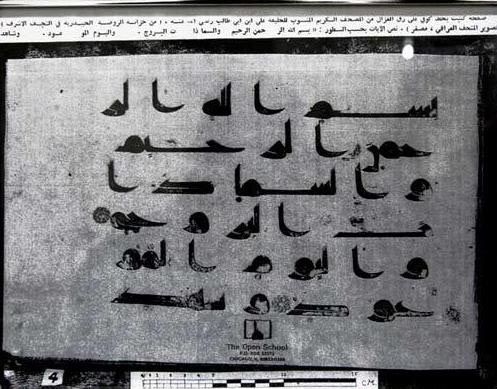 صفحة كتبت بخط كوفي على رق الغزال من المصحف الكريم المنسوب للخليفة علي ابن ابي طالب رضي من خزانة الروضة الحيدرية في النجف الاشرف )
تصوير المتحف العراقي ، مصغر ) . نص الآيات بحسب السطور : « بسم الله الر حمن الرحيم والسما ذا ت البروج . واليوم المو عود . وشاهد
بسم الله الر
حمن الرحيم
والسما ذا
ت البروج
واليوم المو
عود
The Open School
P.O. BOX
CHICAGO, IL
4
CM.